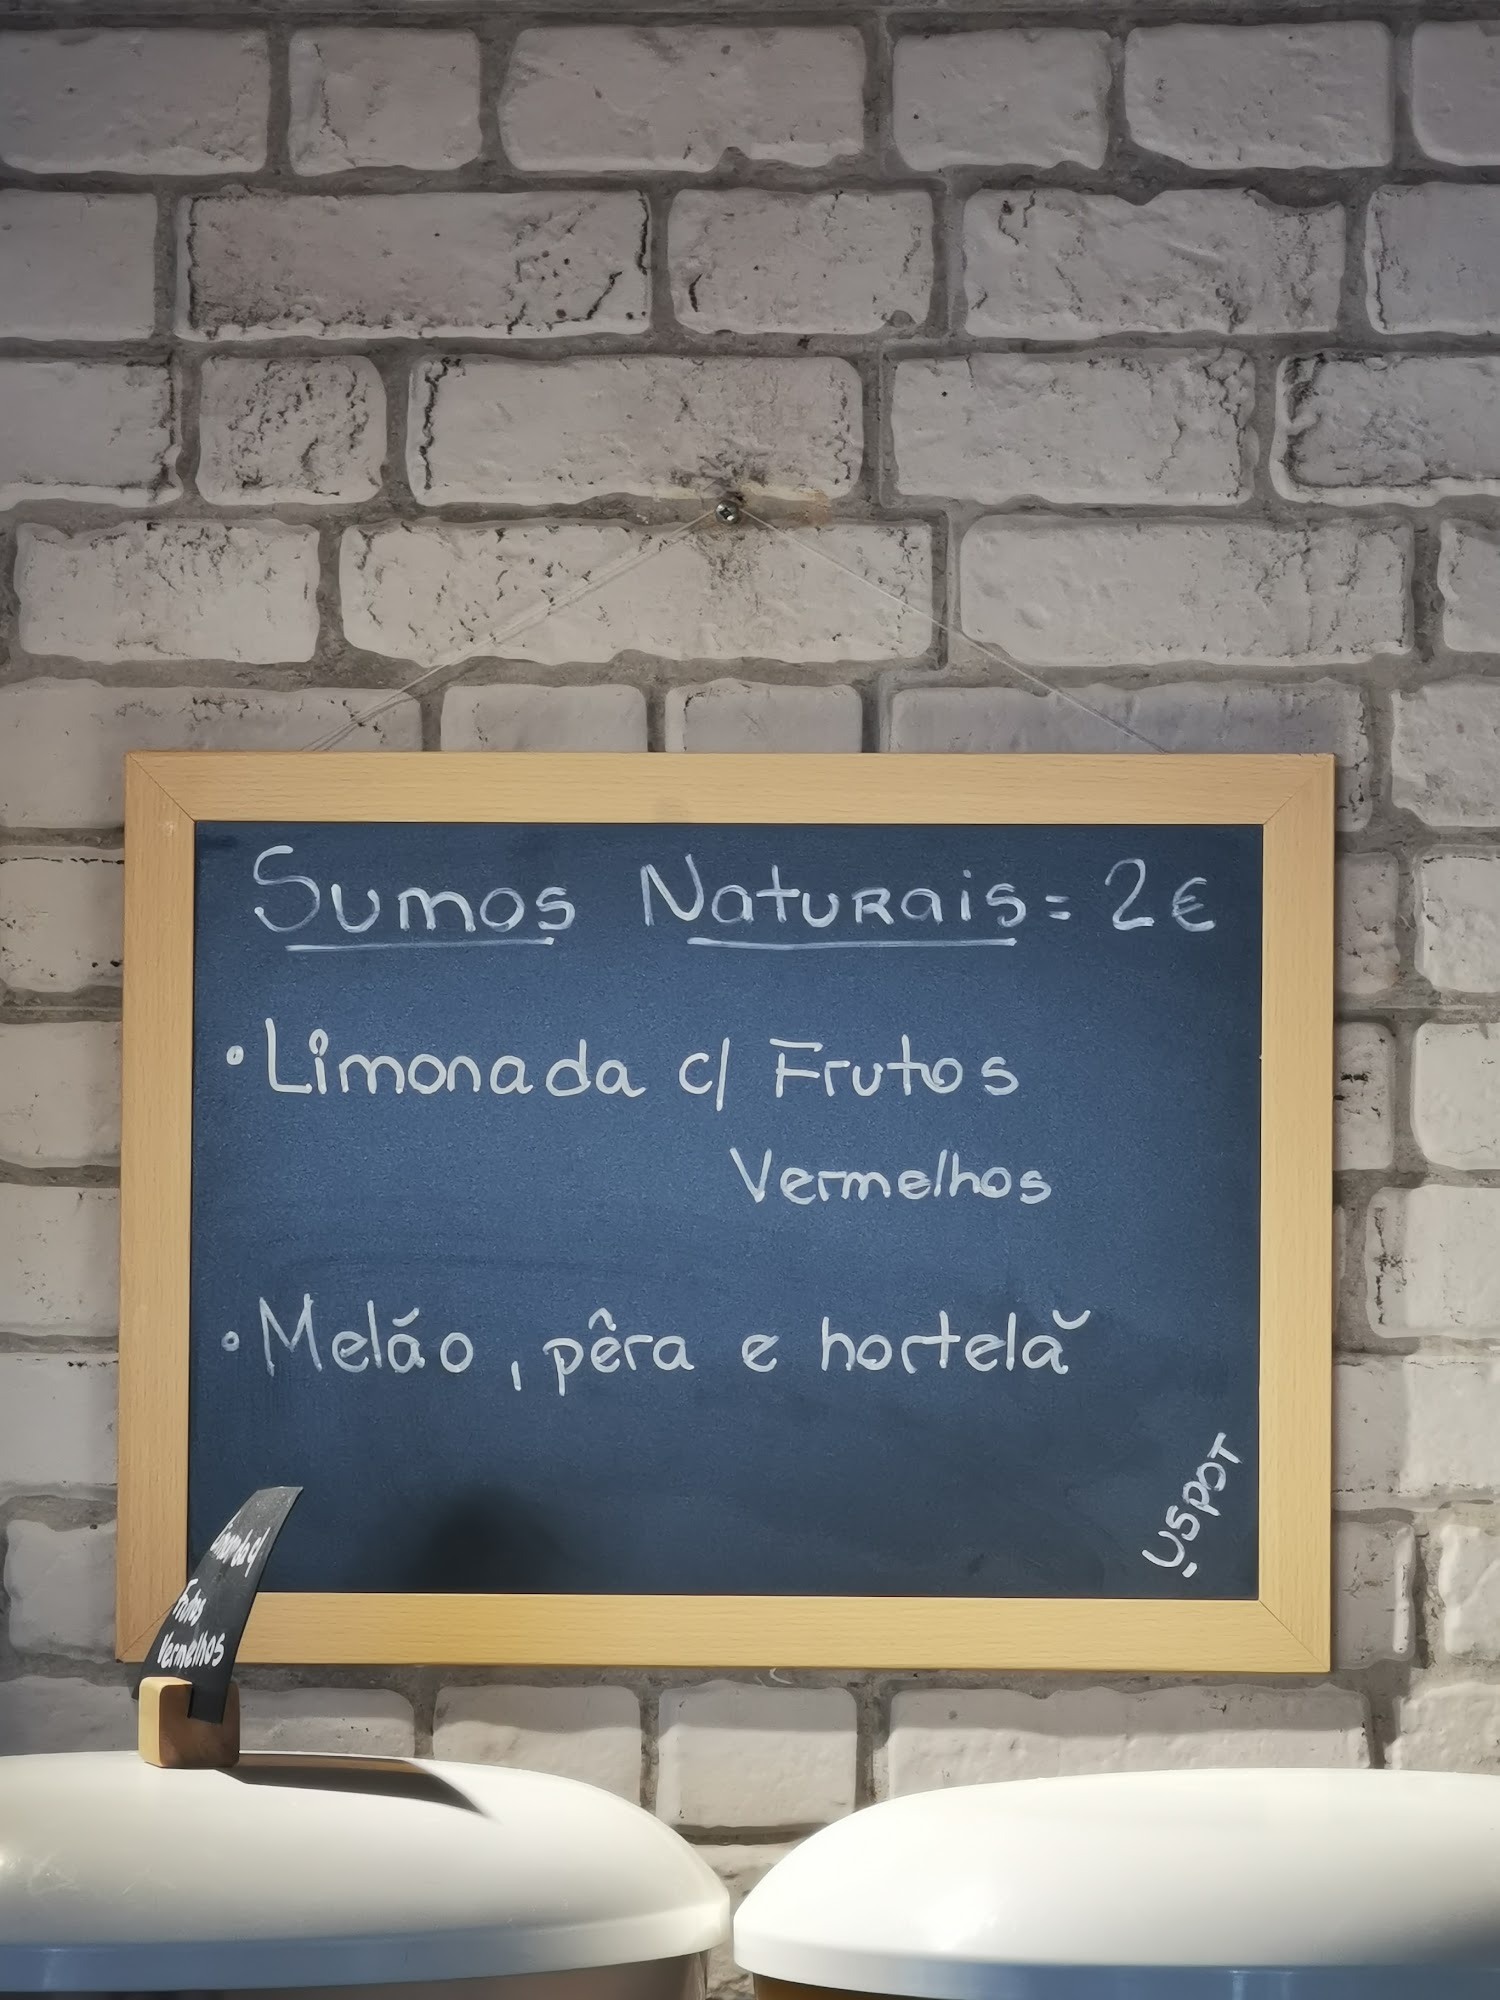 Sumos Naturais = 2€
• Limonada c/ Frutos
Vermelhos
• Meláo, pêra e hortelã
USPOT
Limonada c/
Frutos
Vermelhos